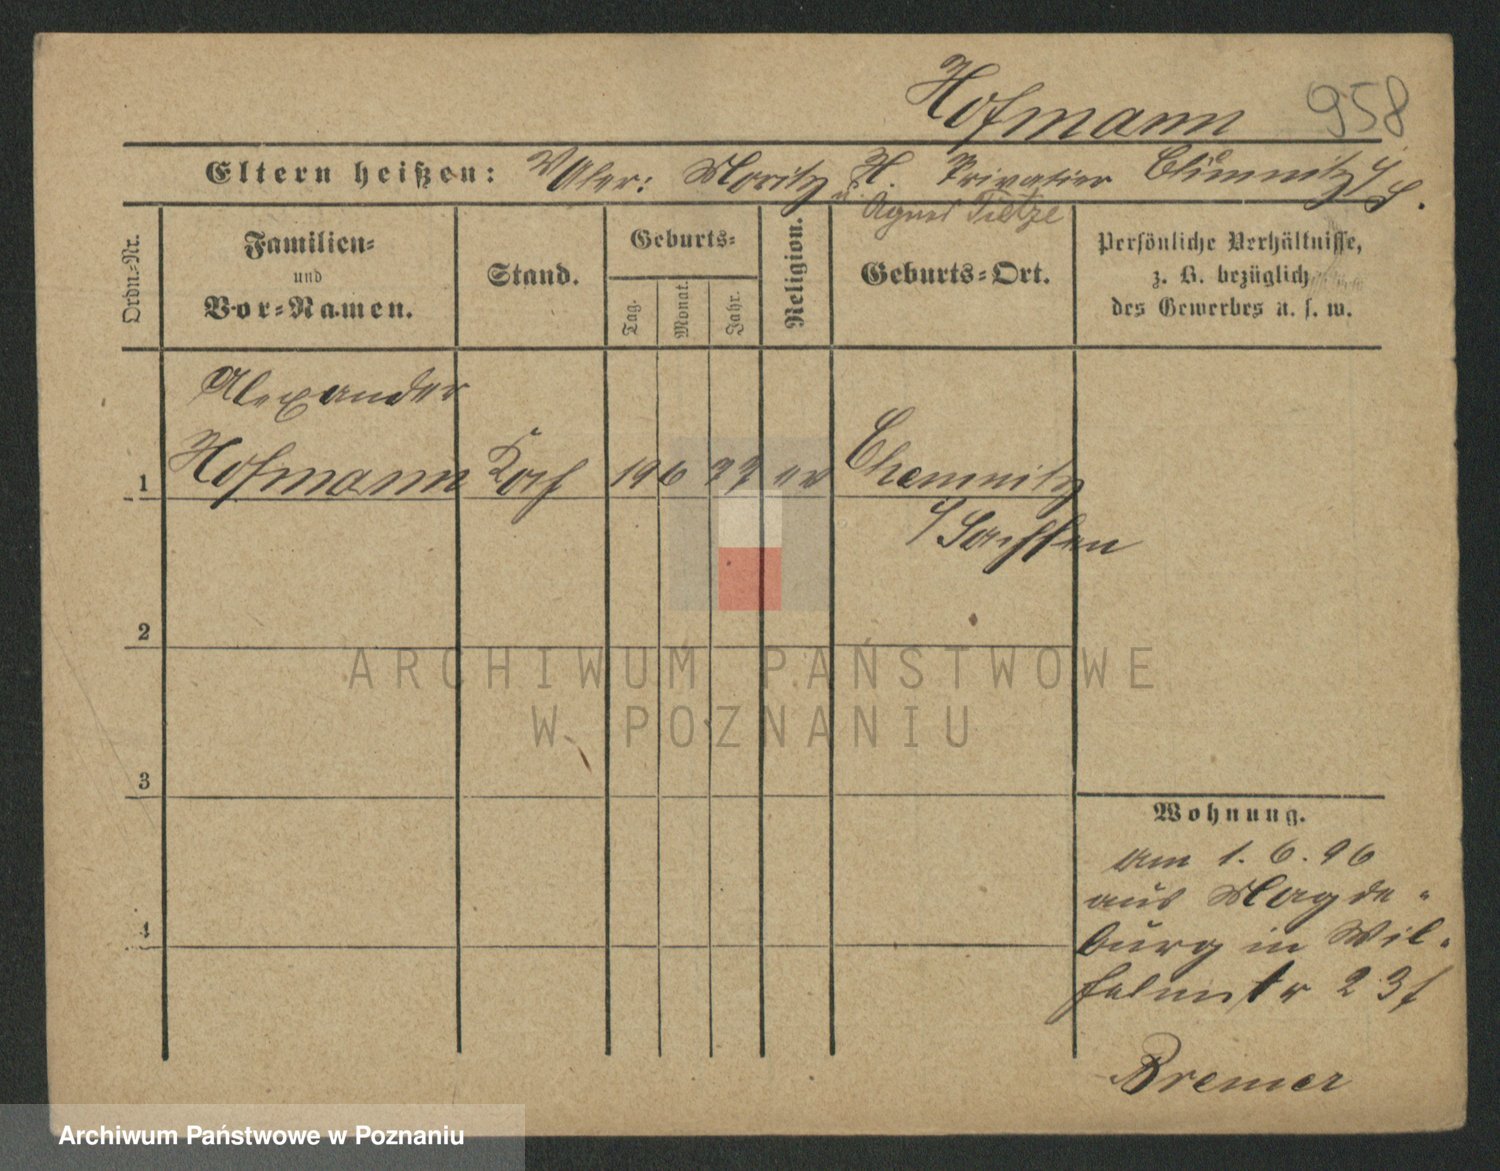 Hofmann 958
Eltern heißen: Vater: Moritz H. Privatier Chemnitz i/S.
u. Agnes Tietze
Ordn.-Nr.
Familien- und Vor-Namen.
Stand.
Geburts-
Tag. Monat. Jahr.
Religion.
Geburts-Ort.
Persönliche Verhältnisse,
z. B. bezüglich
des Gewerbes u. s. w.
Alexander
1 Hofmann Koch 19 6 77 ev Chemnitz
i/Sachsen
2
3
4
Wohnung.
am 1. 6. 96
aus Magde-
burg in Wil-
helmstr 23 f
Bremer
ARCHIWUM PAŃSTWOWE
W POZNANIU
Archiwum Państwowe w Poznaniu